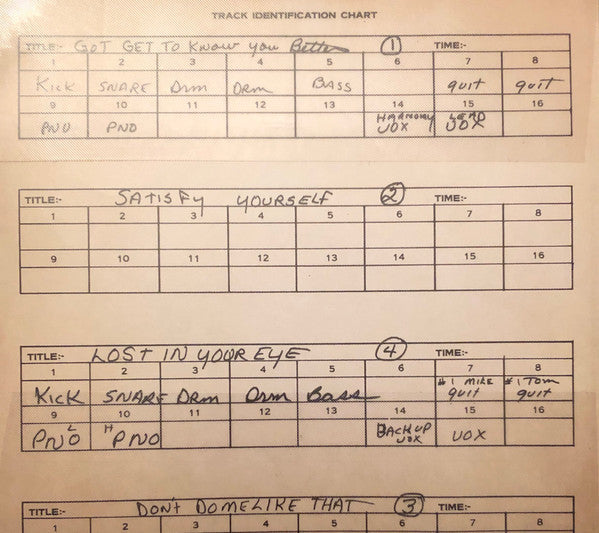 TRACK IDENTIFICATION CHART
TITLE:- GOT GET TO KNOW YOU Better 1 TIME:-
1 2 3 4 5 6 7 8
Kick SNARE Drm Drm BASS guit guit
9 10 11 12 13 14 15 16
PNO PNO HARMONY VOX LEAD VOX
TITLE:- SATISFY YOURSELF 2 TIME:-
1 2 3 4 5 6 7 8
9 10 11 12 13 14 15 16
TITLE:- LOST IN YOUR EYE 4 TIME:-
1 2 3 4 5 6 7 8
Kick SNARE Drm Drm Bass #1 MIKE guit #1 Tom guit
9 10 11 12 13 14 15 16
PNO L H PNO BACKUP VOX VOX
TITLE:- DON'T DO ME LIKE THAT 3 TIME:-
1 2 3 4 5 6 7 8